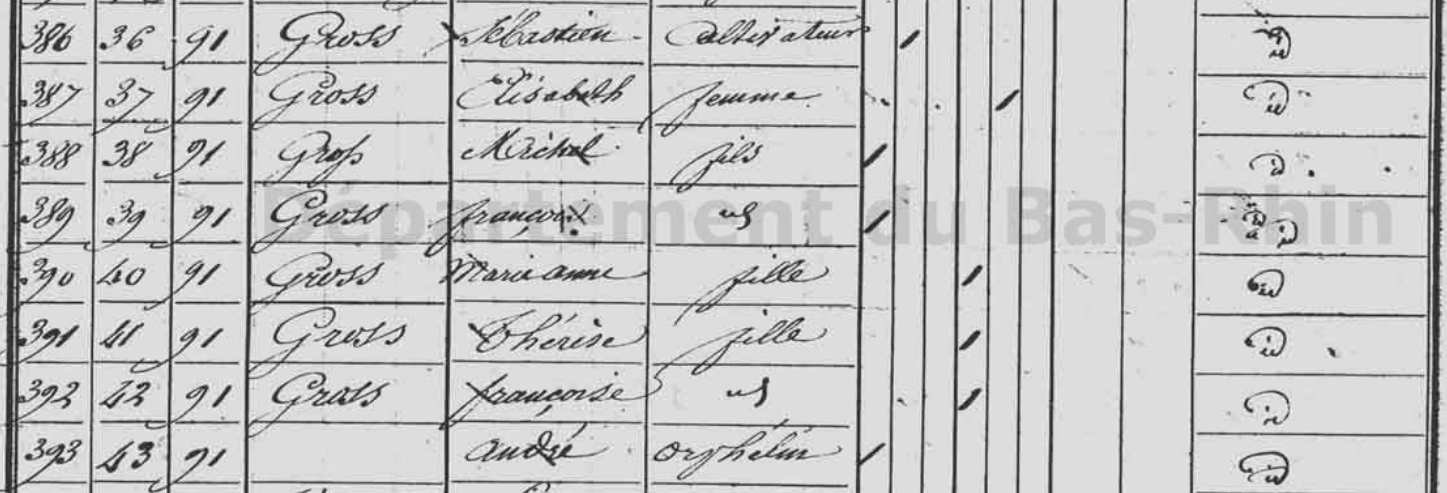 386 36 91 Gross Sébastien Cultivateur
387 37 91 Gross Elisabeth femme
388 38 91 Gross Michel fils
389 39 91 Gross françois id
390 40 91 Gross Marie anne fille
391 41 91 Gross Thérèse fille
392 42 91 Gross françoise id
393 43 91 andré orphelin
Département du Bas-Rhin